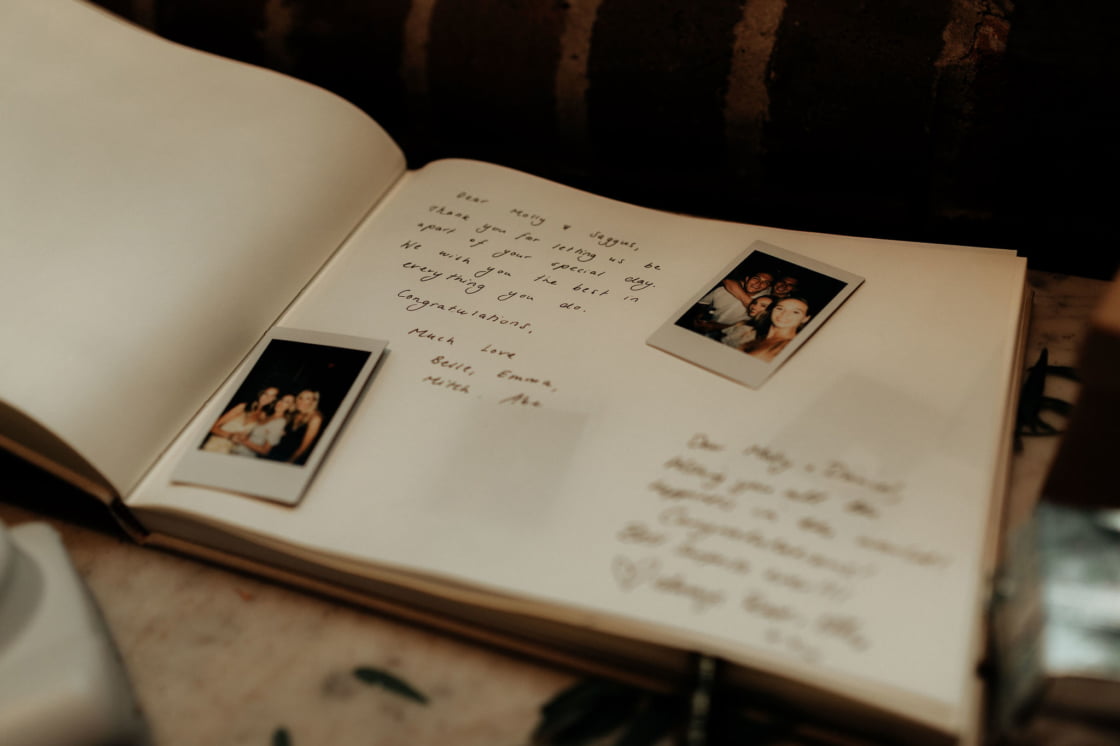 Dear Molly & Saggus,
Thank you for letting us be
apart of your special day.
We wish you the best in
everything you do.
Congratulations,
Much Love
Belle, Emma,
Mitch, Abe
Dear Molly & Daniel
Wishing you all the
happiness in the world!
Congratulations!